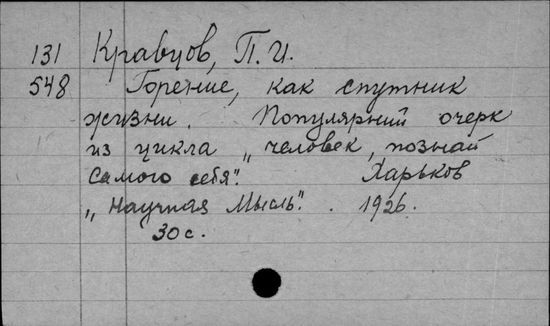 131 Кравцов, П.И.
548 Горение, как спутник
жизни. Популярний очерк
из цикла „человек, познай
самого себя". Харьков
„Научная Мысль". . 1926.
30 с.